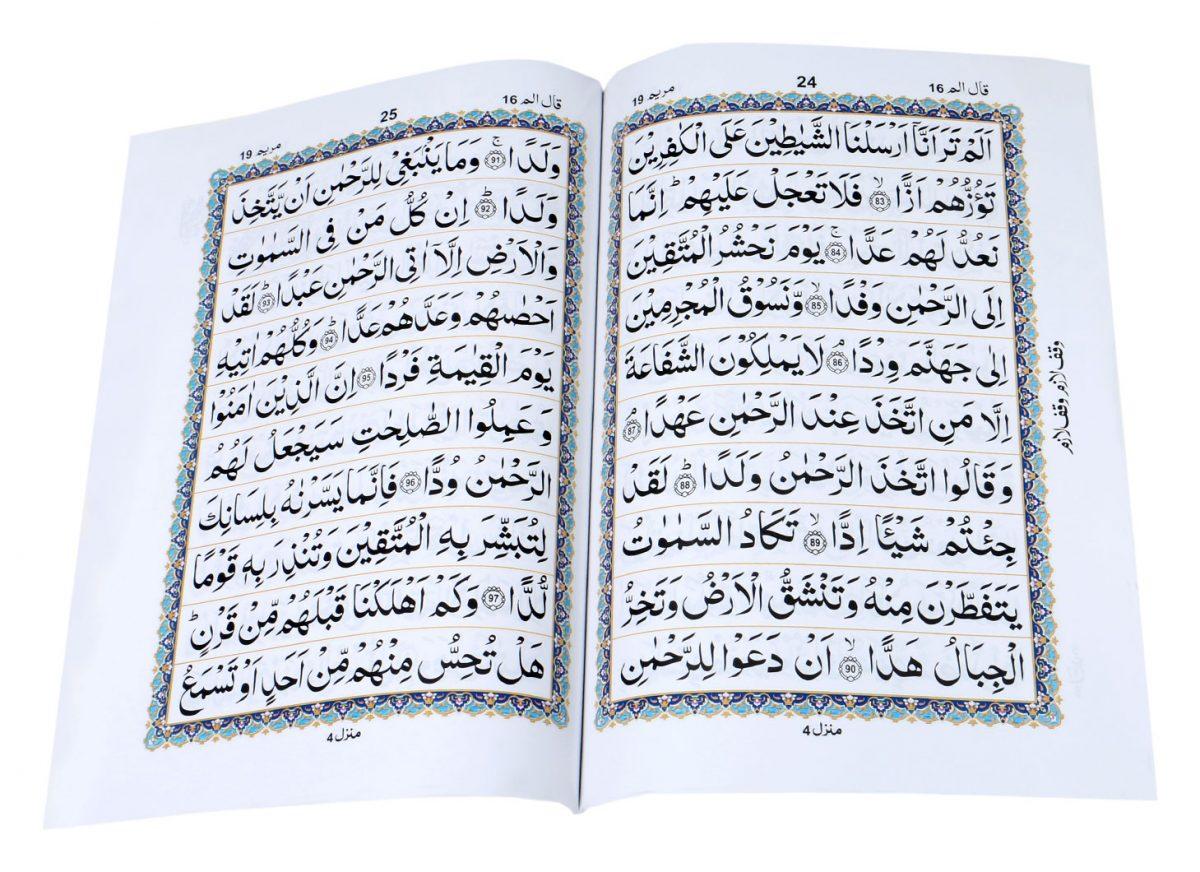 قال الم 16
24
مريم 19
اَلَمْ تَرَ اَنَّاۤ اَرْسَلْنَا الشَّيٰطِيْنَ عَلَى الْكٰفِرِيْنَ
تَؤُزُّهُمْ اَزًّا ۙ83 فَلَا تَعْجَلْ عَلَيْهِمْ ؕ اِنَّمَا
نَعُدُّ لَهُمْ عَدًّا ۚ84 يَوْمَ نَحْشُرُ الْمُتَّقِيْنَ
اِلَى الرَّحْمٰنِ وَفْدًا ۙ85 وَّنَسُوْقُ الْمُجْرِمِيْنَ
اِلٰى جَهَنَّمَ وِرْدًا ۘ86 لَا يَمْلِكُوْنَ الشَّفَاعَةَ
اِلَّا مَنِ اتَّخَذَ عِنْدَ الرَّحْمٰنِ عَهْدًا ۘ87
وَقَالُوا اتَّخَذَ الرَّحْمٰنُ وَلَدًا ؕ88 لَقَدْ
جِئْتُمْ شَيْئًا اِدًّا ۙ89 تَكَادُ السَّمٰوٰتُ
يَتَفَطَّرْنَ مِنْهُ وَتَنْشَقُّ الْاَرْضُ وَتَخِرُّ
الْجِبَالُ هَدًّا ۙ90 اَنْ دَعَوْا لِلرَّحْمٰنِ
وقف لازم وقف لازم
منزل 4
قال الم 16
25
مريم 19
وَلَدًا ۚ91 وَمَا يَنْۢبَغِيْ لِلرَّحْمٰنِ اَنْ يَّتَّخِذَ
وَلَدًا ؕ92 اِنْ كُلُّ مَنْ فِي السَّمٰوٰتِ
وَالْاَرْضِ اِلَّاۤ اٰتِي الرَّحْمٰنِ عَبْدًا ؕ93 لَقَدْ
اَحْصٰىهُمْ وَعَدَّهُمْ عَدًّا ؕ94 وَكُلُّهُمْ اٰتِيْهِ
يَوْمَ الْقِيٰمَةِ فَرْدًا 95 اِنَّ الَّذِيْنَ اٰمَنُوْا
وَعَمِلُوا الصّٰلِحٰتِ سَيَجْعَلُ لَهُمُ
الرَّحْمٰنُ وُدًّا 96 فَاِنَّمَا يَسَّرْنٰهُ بِلِسَانِكَ
لِتُبَشِّرَ بِهِ الْمُتَّقِيْنَ وَتُنْذِرَ بِهٖ قَوْمًا
لُّدًّا 97 وَكَمْ اَهْلَكْنَا قَبْلَهُمْ مِّنْ قَرْنٍ ؕ
هَلْ تُحِسُّ مِنْهُمْ مِّنْ اَحَدٍ اَوْ تَسْمَعُ
منزل 4